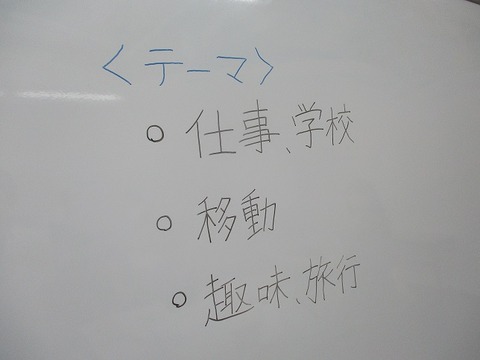 〈テーマ〉
○ 仕事、学校
○ 移動
○ 趣味、旅行